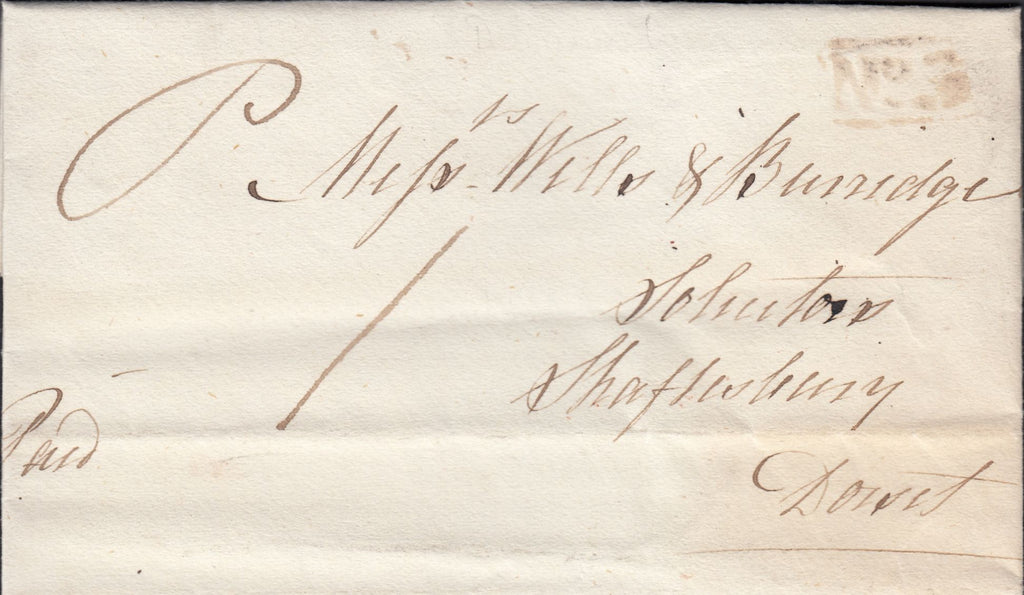 P Messrs Wills & Burridge
/
Solicitors
Shaftesbury
Paid
Dorset